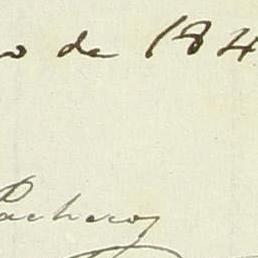 o de 184
Pacheco